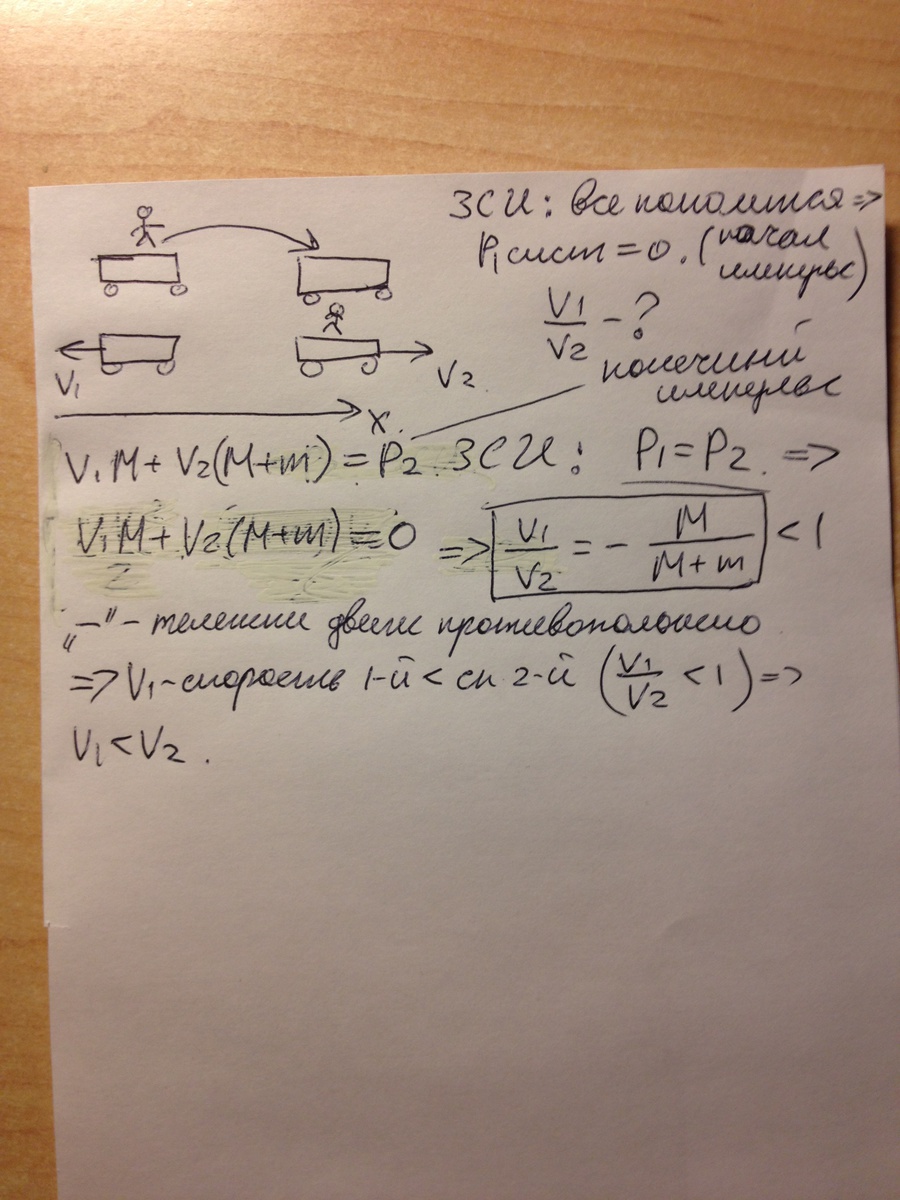 ЗСИ: все покоится =>
P₁сист = 0. (начал
импульс)
V₁/V₂ - ?
конечный
импульс
V₁ V₂
X.
V₁M + V₂(M+m) = P₂. ЗСИ: P₁ = P₂. =>
V₁M + V₂(M+m) = 0 => V₁/V₂ = - M/(M+m) < 1
„—" - тележки движ противоположно
=> V₁ - скорость 1-й < ск 2-й (V₁/V₂ < 1) =>
V₁ < V₂.